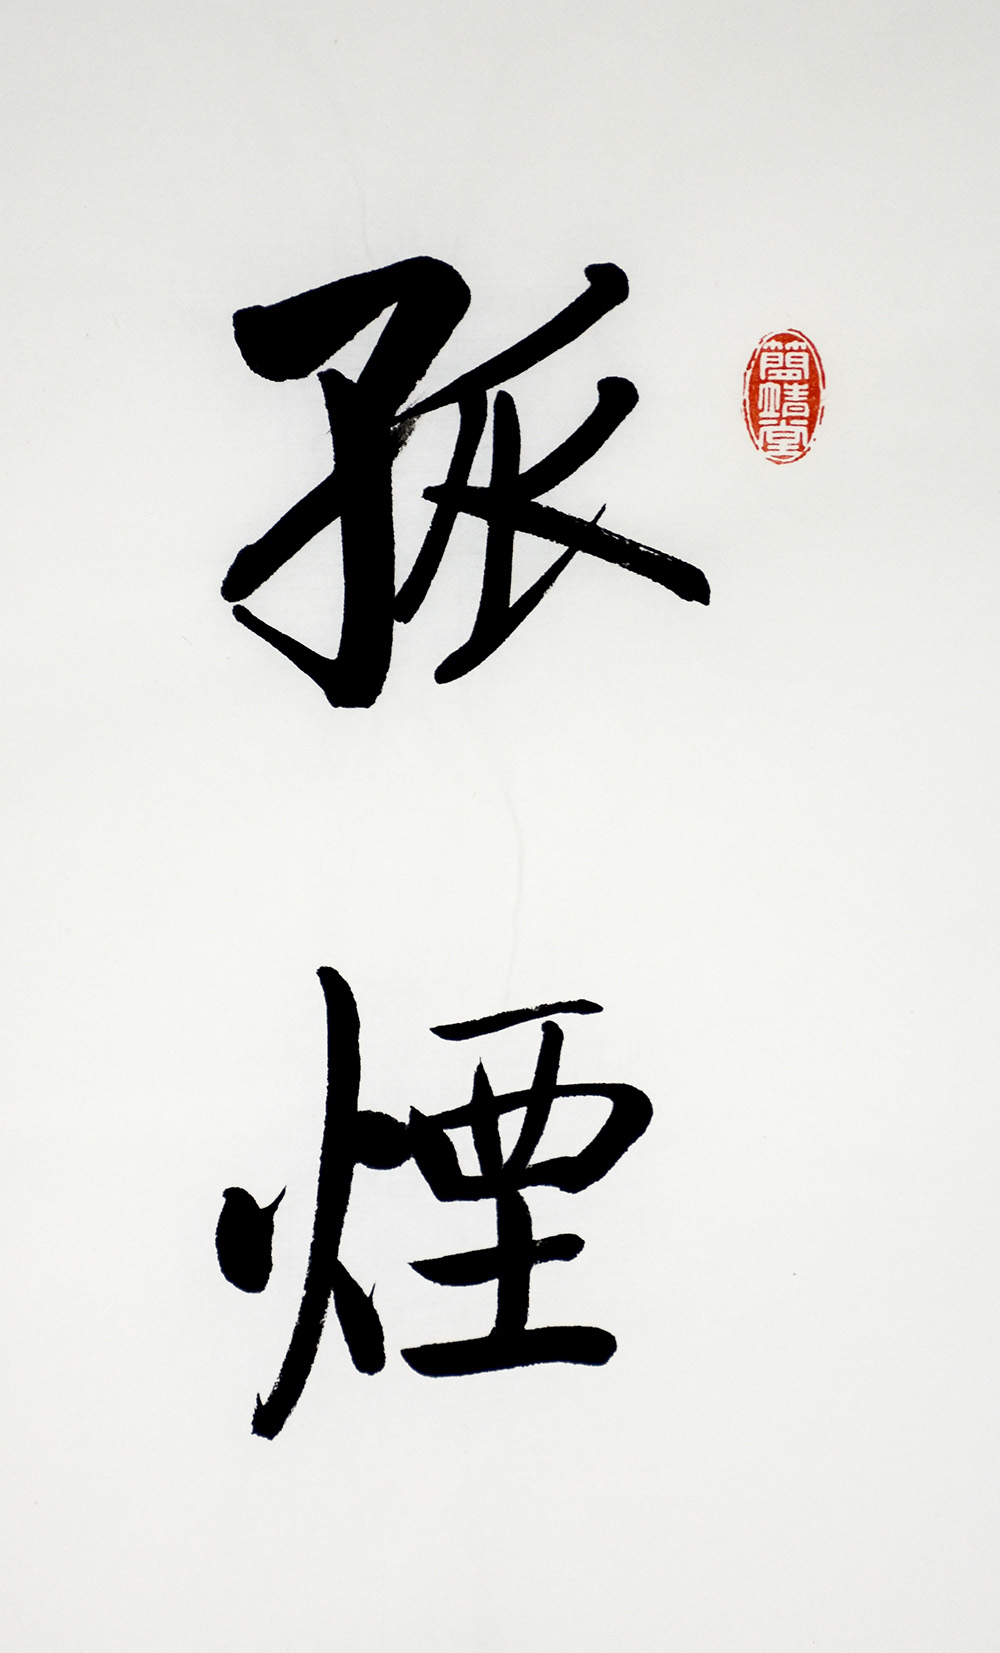 孤煙
簡靖堂